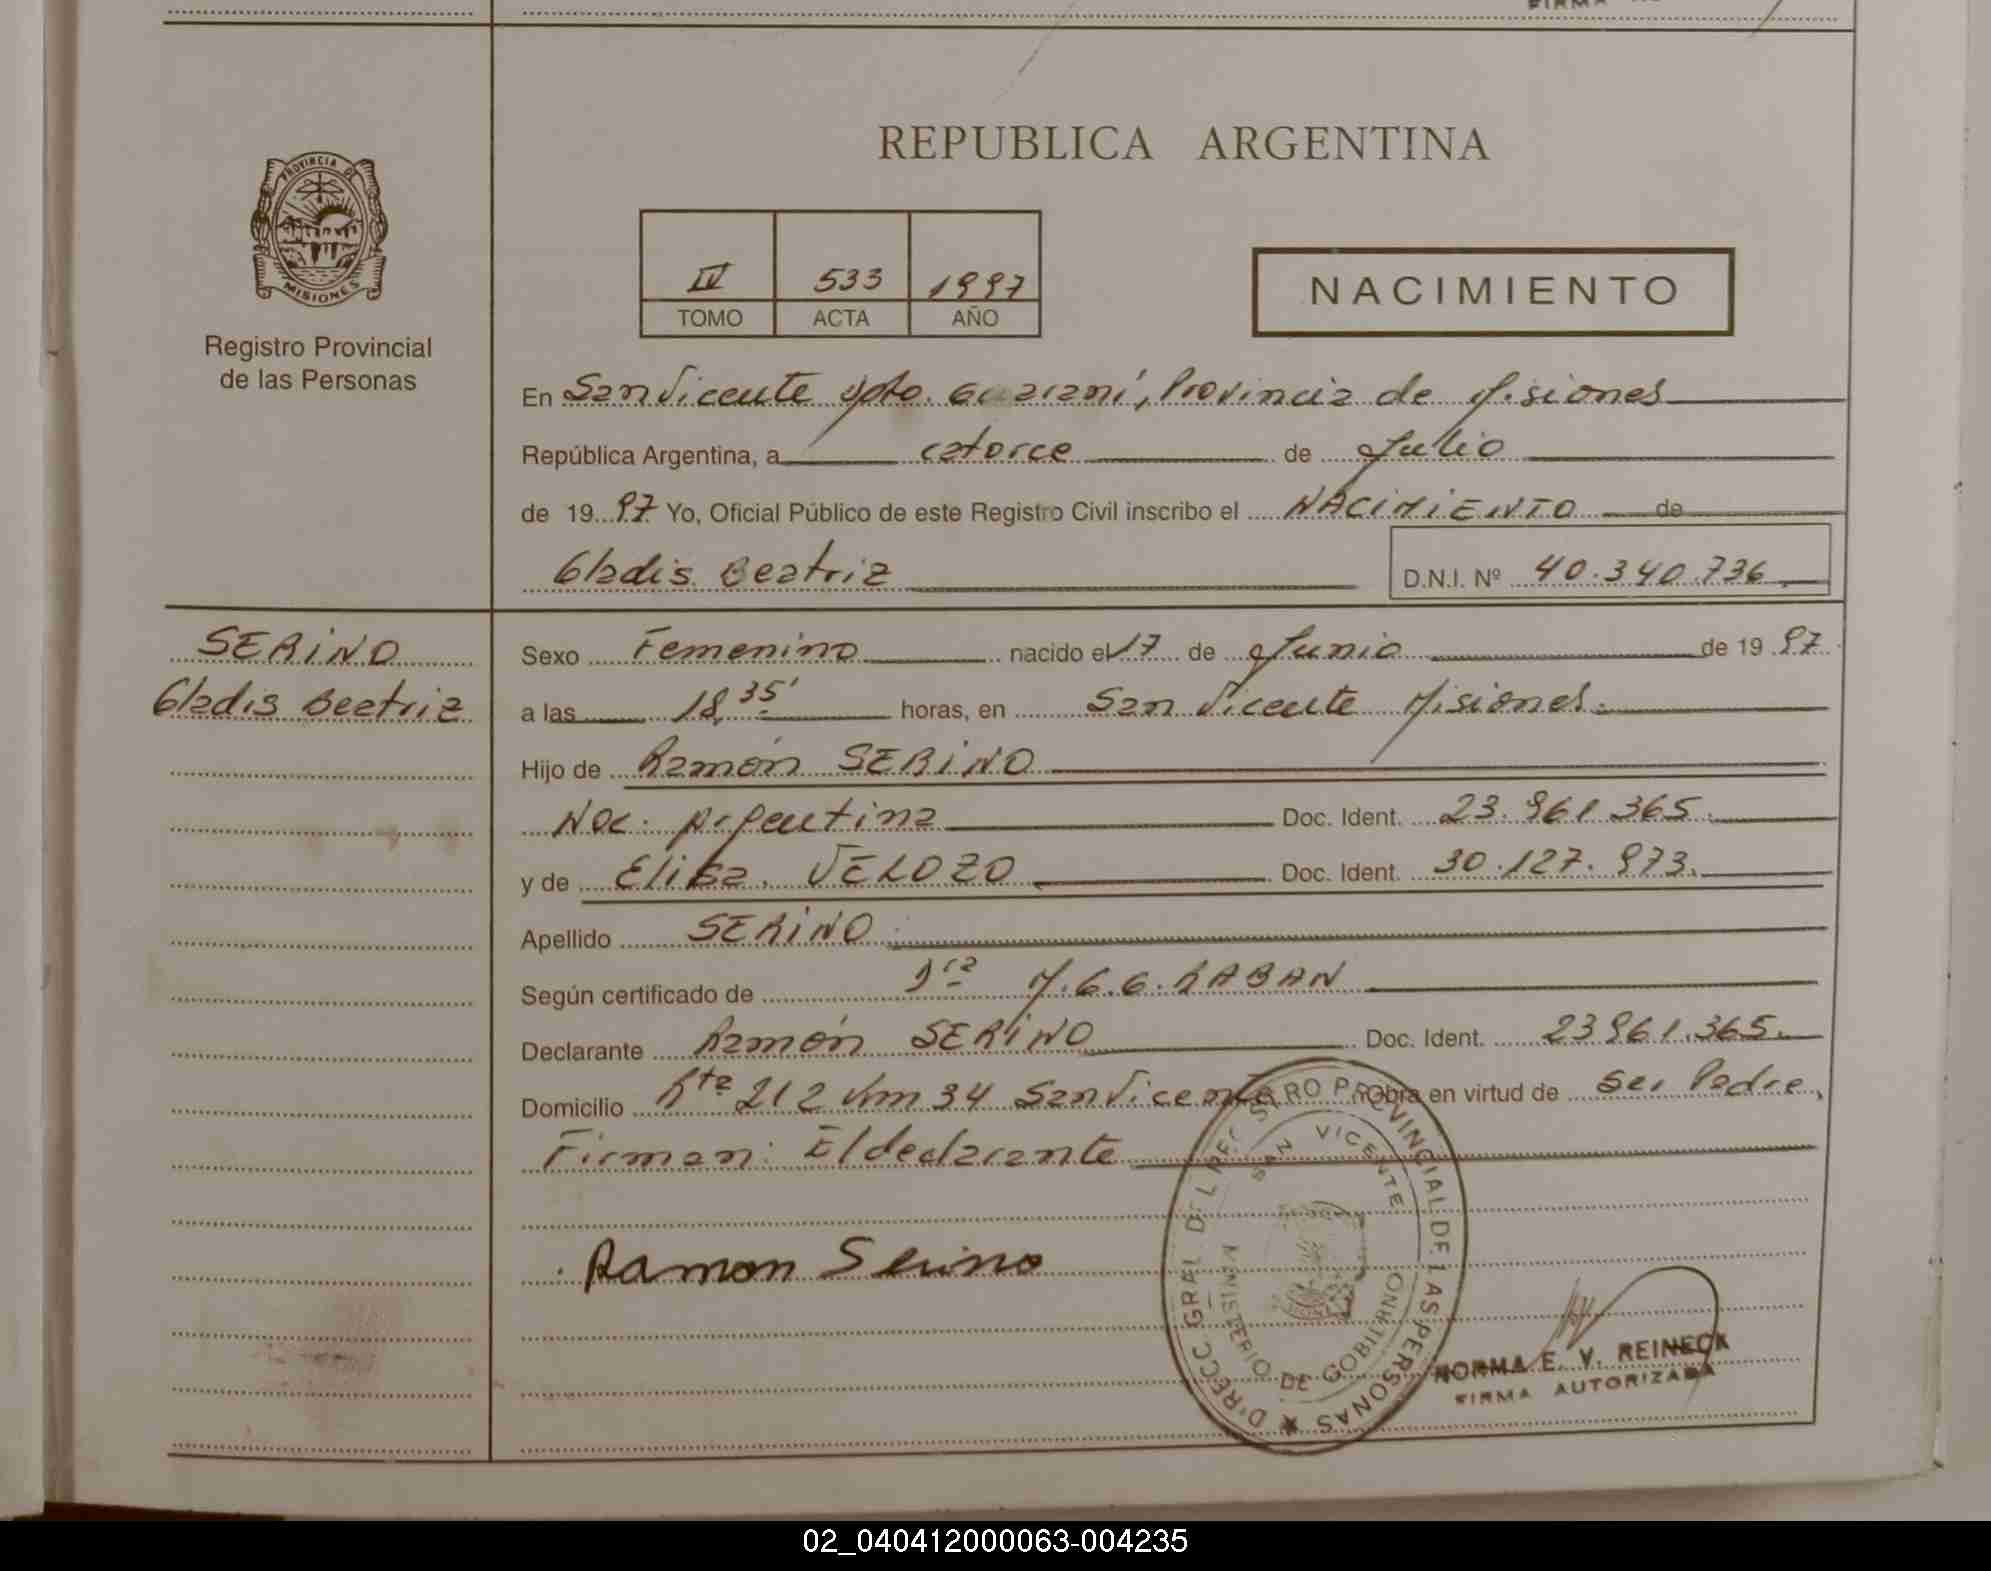 REPUBLICA ARGENTINA
PROVINCIA DE MISIONES
Registro Provincial
de las Personas
IV 533 1997
TOMO ACTA AÑO
NACIMIENTO
En San Vicente Dpto. Guaraní, Provincia de Misiones
República Argentina, a catorce de Julio
de 1997 Yo, Oficial Público de este Registro Civil inscribo el NACIMIENTO de
Gladis Beatriz D.N.I. Nº 40.340.736
SERINO
Gladis Beatriz
Sexo Femenino nacido el 17 de Junio de 1997
a las 18,35' horas, en San Vicente Misiones.
Hijo de Ramón SERINO
Nac. Argentina Doc. Ident. 23.961.365.
y de Elisa VELOZO Doc. Ident. 30.127.973.
Apellido SERINO
Según certificado de Dra M.G.G. RABAN
Declarante Ramón SERINO Doc. Ident. 23961.365.
Domicilio Rta 212 Km 34 San Vicente Obra en virtud de Ser Padre,
Firman: El declarante
Ramon Serino
DIRECC GRAL DEL REGISTRO PROVINCIAL DE LAS PERSONAS
SAN VICENTE
MINISTERIO DE GOBIERNO
NORMA E. V. REINECK
FIRMA AUTORIZADA
02_040412000063-004235